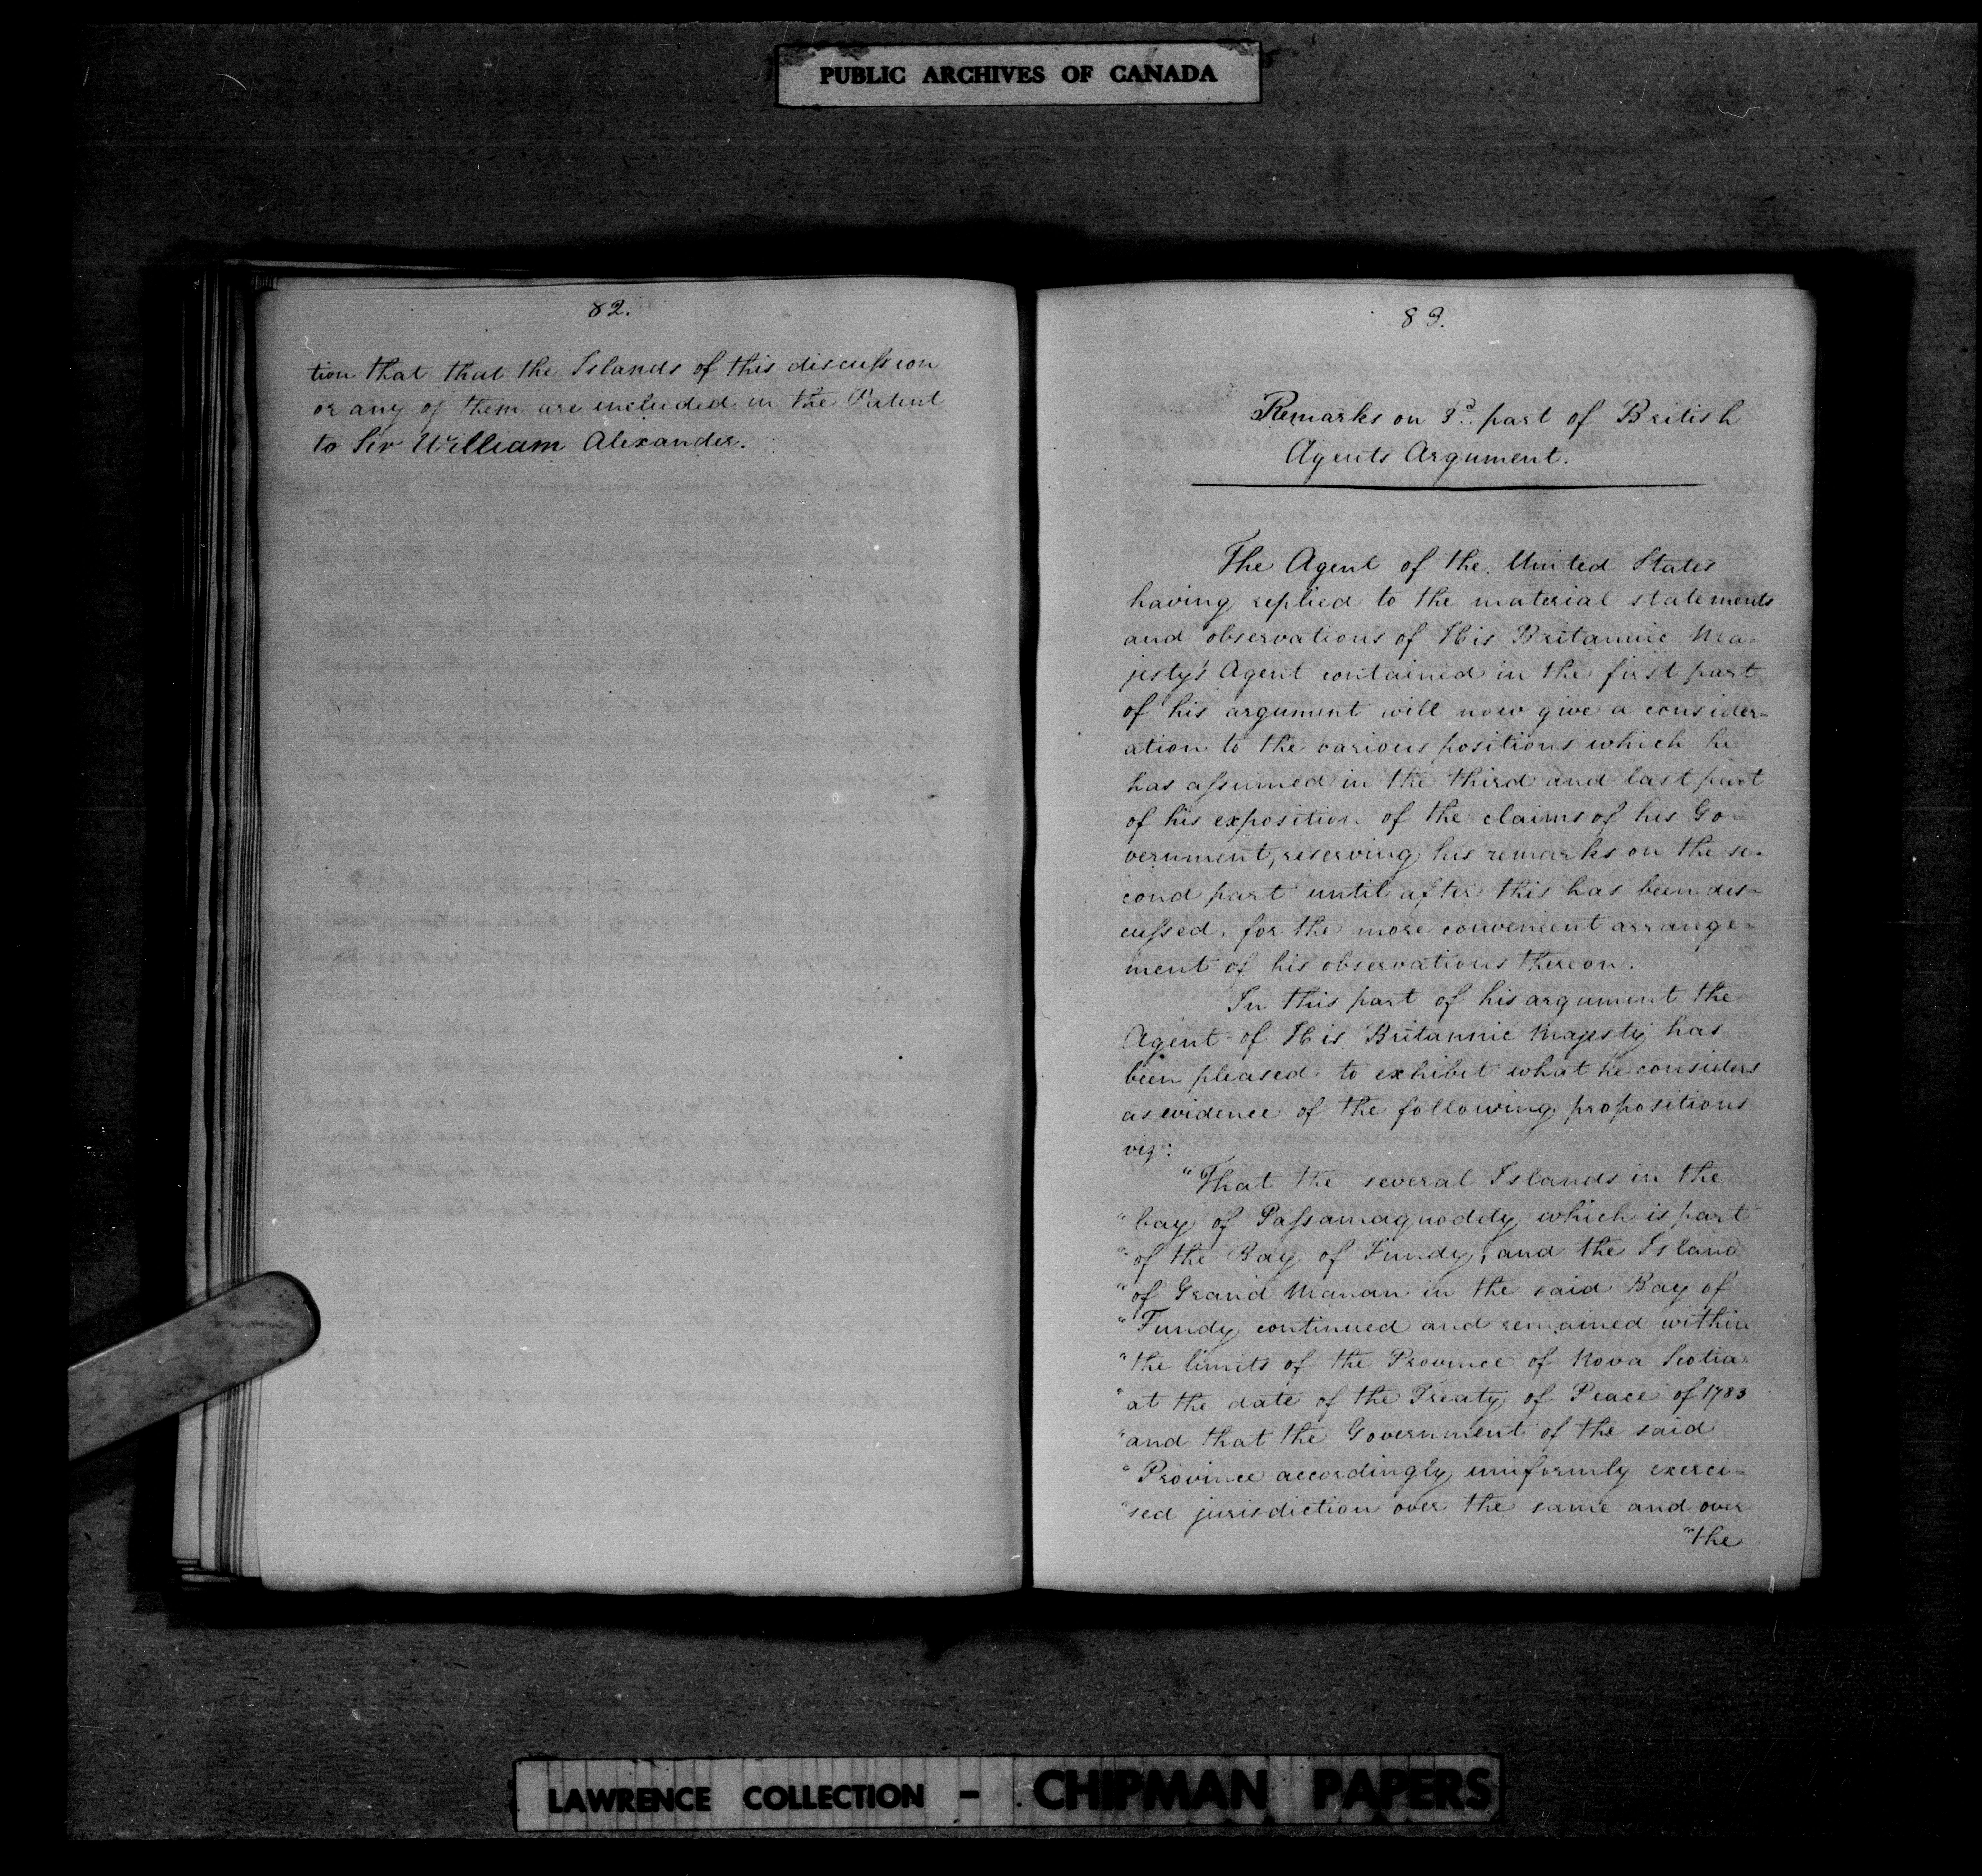 PUBLIC ARCHIVES OF CANADA
82.
tion that that the Islands of this discussion
or any of them are included in the Patent
to Sir William Alexander.
83.
Remarks on 3d. part of British
Agents Argument.
The Agent of the United States
having replied to the material statements
and observations of His Britannic Ma-
jesty's Agent contained in the first part
of his argument will now give a consider-
ation to the various positions which he
has assumed in the third and last part
of his exposition of the claims of his Go-
vernment, reserving his remarks on the se-
cond part until after this has been dis-
cussed, for the more convenient arrange-
ment of his observations thereon.
In this part of his argument the
Agent of His Britannic Majesty has
been pleased to exhibit what he considers
as evidence of the following propositions
viz:
"That the several Islands in the
"bay of Passamaquoddy which is part
"of the Bay of Fundy, and the Island
"of Grand Manan in the said Bay of
"Fundy continued and remained within
"the limits of the Province of Nova Scotia
"at the date of the Treaty of Peace of 1783
"and that the Government of the said
"Province accordingly uniformly exerci-
"sed jurisdiction over the same and over
"the
LAWRENCE COLLECTION - CHIPMAN PAPERS